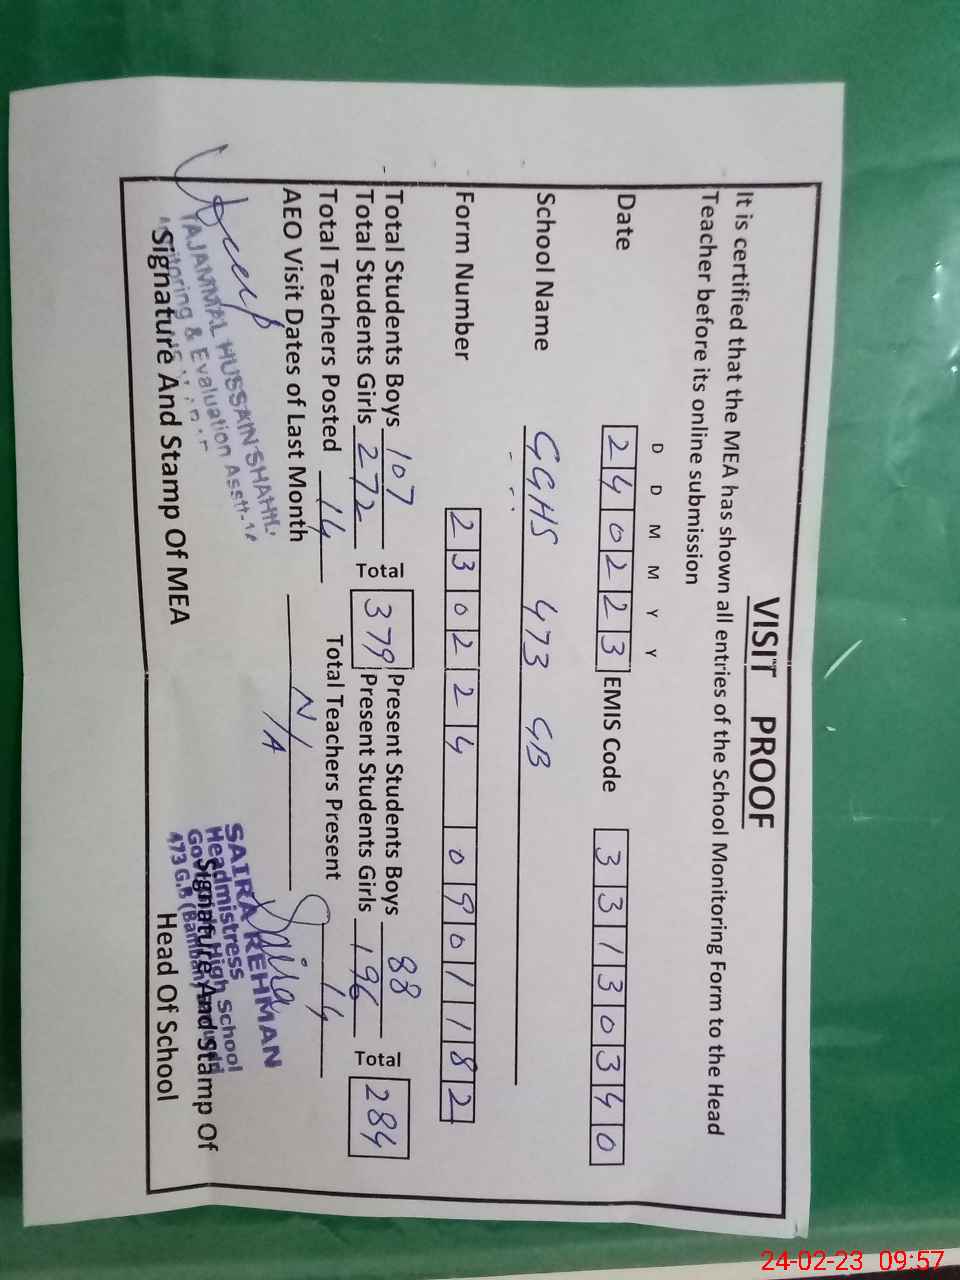 VISIT PROOF
It is certified that the MEA has shown all entries of the School Monitoring Form to the Head
Teacher before its online submission
D D M M Y Y
Date 240223 EMIS Code 33130340
School Name GGHS 473 GB
Form Number 230224 0901182
Total Students Boys 107 Total 379 Present Students Boys 88 Total 284
Total Students Girls 272 Present Students Girls 196
Total Teachers Posted 14 Total Teachers Present 14
AEO Visit Dates of Last Month N/A
TAJAMMAL HUSSAIN SHAHI
Monitoring & Evaluation Asstt-
Signature And Stamp Of MEA
Saira
SAIRA REHMAN
Headmistress
High School
473 G.B
Signature And Stamp Of
Head Of School
24-02-23 09:57